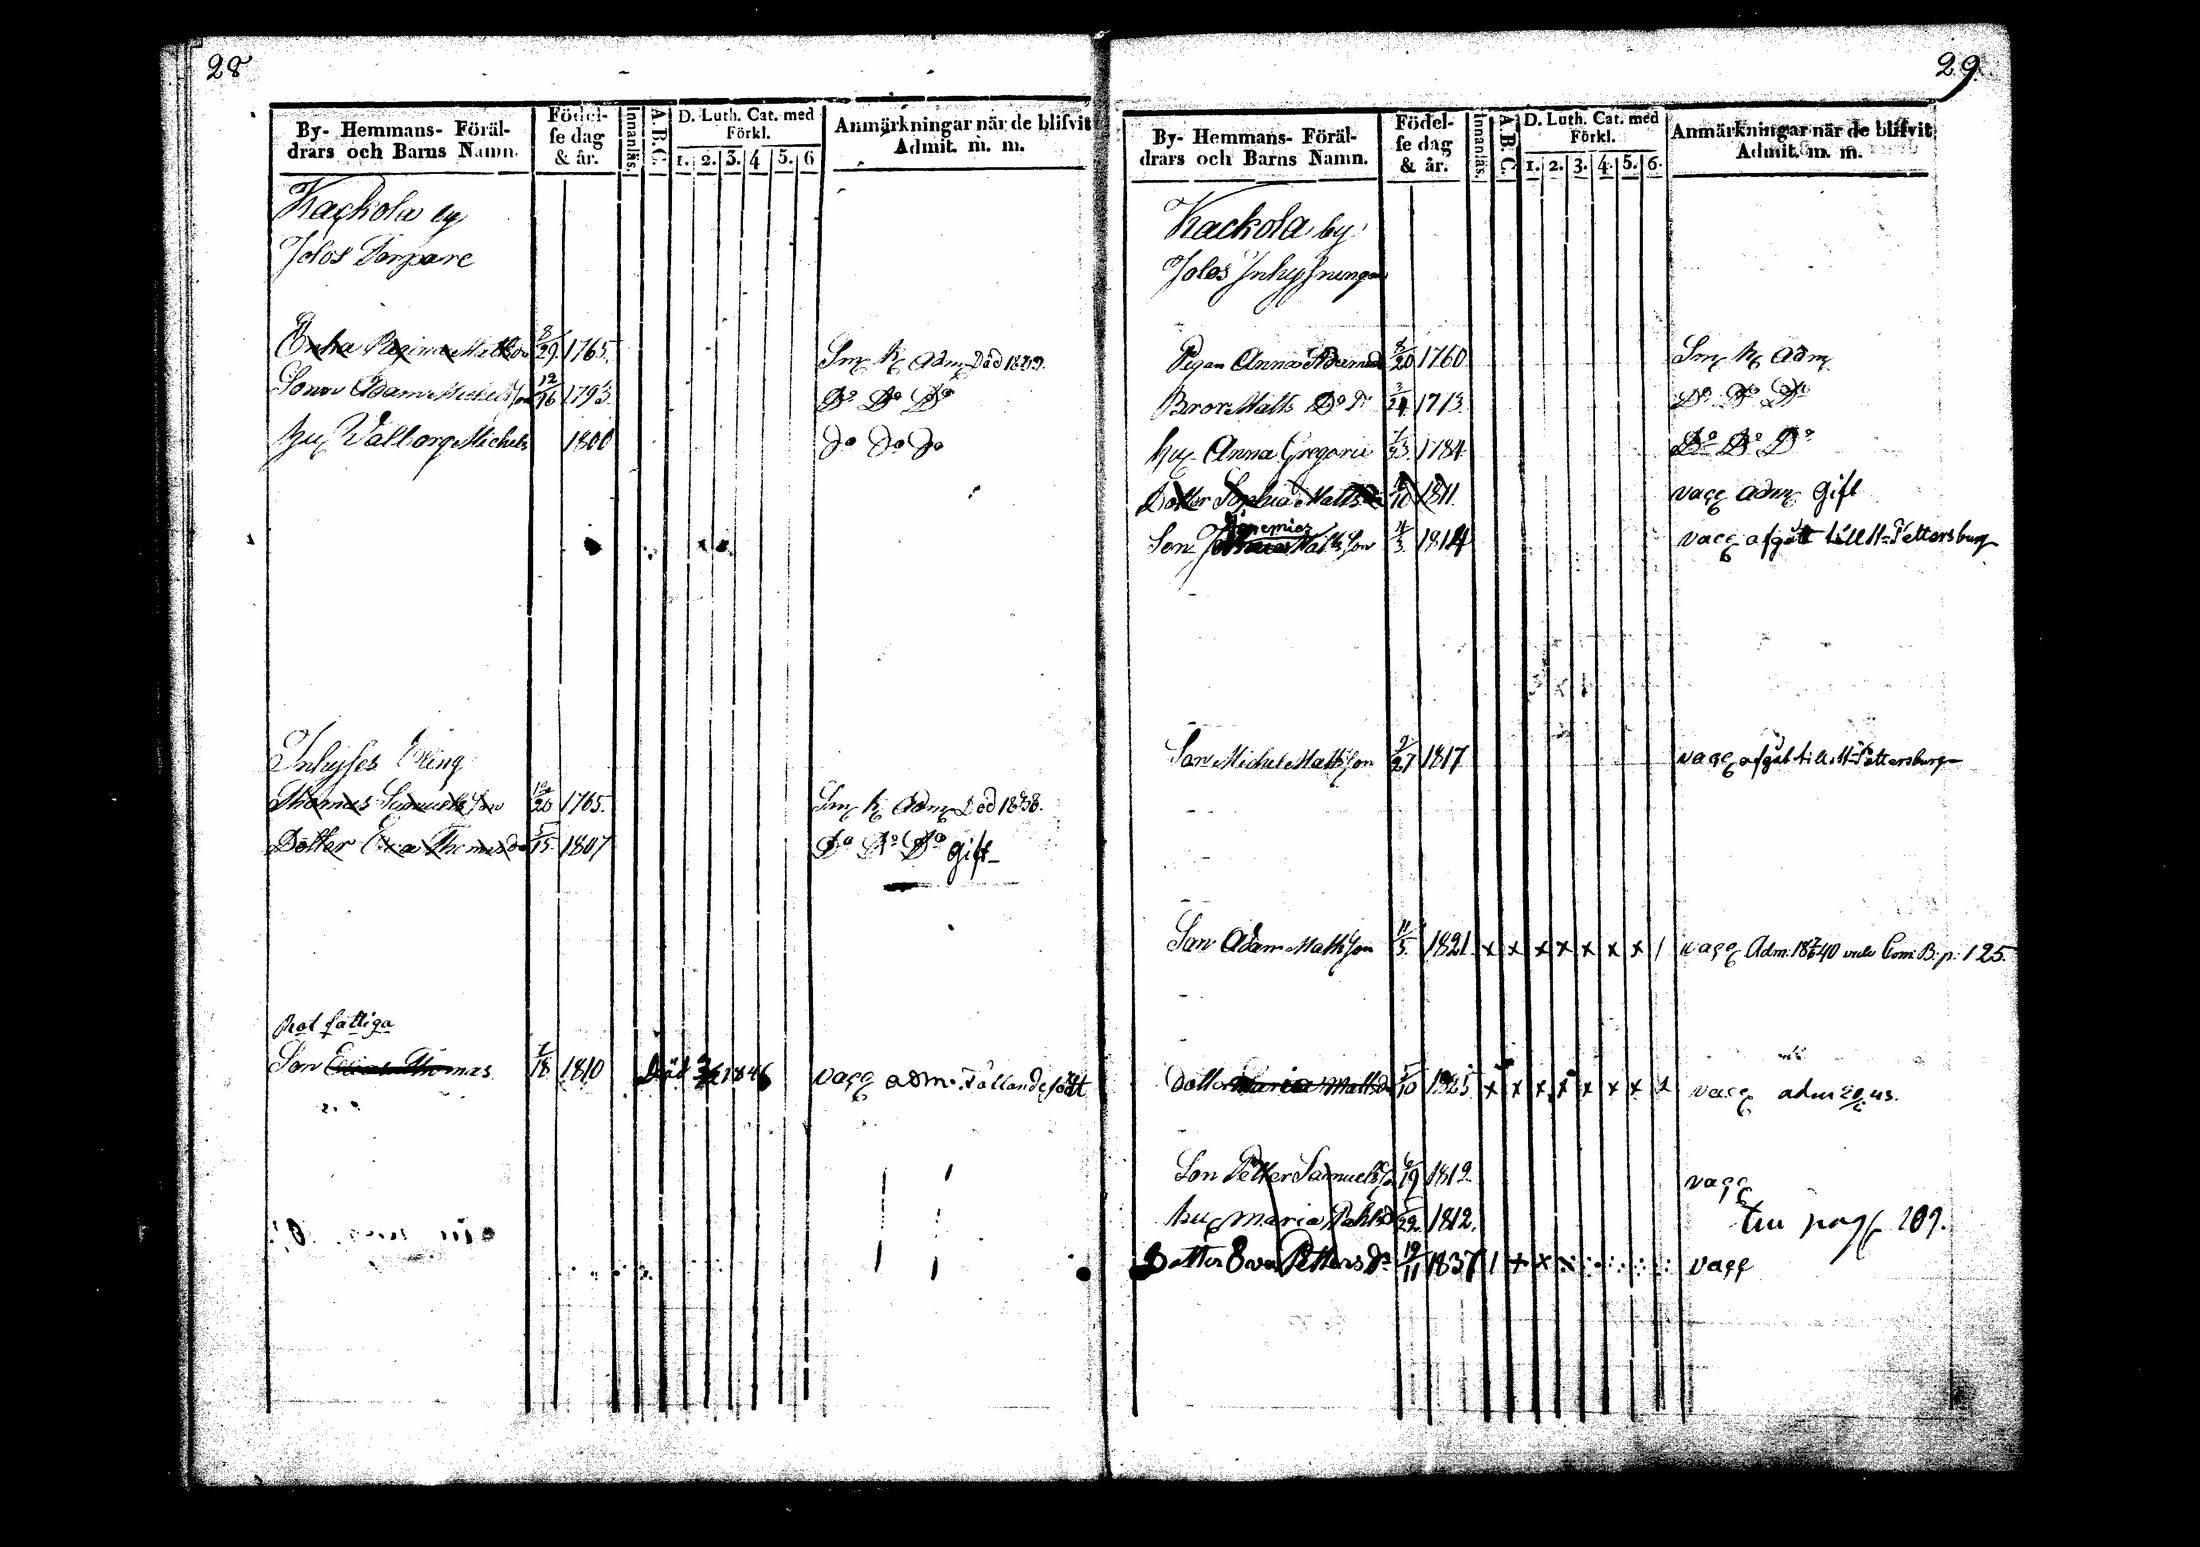 28
By- Hemmans- Föräl-
drars och Barns Namn.
Födel-
se dag
& år.
Innanläs.
A.B.C.
D. Luth. Cat. med
Förkl.
1. 2. 3. 4 5. 6
Anmärkningar när de blifvit
Admit. m. m.
Kackola by
Jolos Torpare
Enka Regina Matsdr 8/29 1765. Sm k adm Död 1839.
Sonen Adam Michelsson 12/16 1793. Do Do Do
hu Wallborg Michels 1800 Do Do Do
Inhyses
Thomas Samuelsson 12/20 1765. Sm k adm Död 1838.
Dotter Eva Thomasdr /15 1807 Do Do Do gift
Rot fattiga
Son Thomas /18 1810 Död 1846 vacc adm. Fallandesot
29
By- Hemmans- Föräl-
drars och Barns Namn.
Födel-
se dag
& år.
Innanläs.
A.B.C.
D. Luth. Cat. med
Förkl.
1. 2. 3. 4. 5. 6.
Anmärkningar när de blifvit
Admit. m. m.
Kackola by
Jolos Inhysningar
Pigan Anna Adamsd 8/20 1760 Sm k adm
Bror Matts Do 3/24 1773 Do Do Do
hu Anna Gregorii /23 1784 Do Do Do
Dotter Sophia Mattsdr /10 1811. vacc adm Gift
Jeremias
Son Mattsson 4/3 1814 vacc afgått till St Pettersburg
Son Michel Mattsson 9/27 1817 vacc afgåt till St Pettersburg
Son Adam Mattsson 11/5 1821. x x x x x x x / vacc Adm. 18 40 vide Com: B: p: 125.
Dotter Maria Mattsdr /10 1825 x x x x x x x vacc adm 43.
Son Petter Samuelsson 6/19 1812 vacc
hu Maria Pahlsd /22 1812. till pag 109.
Dotter Eva Pettersdr 12/11 1837 / + x vacc